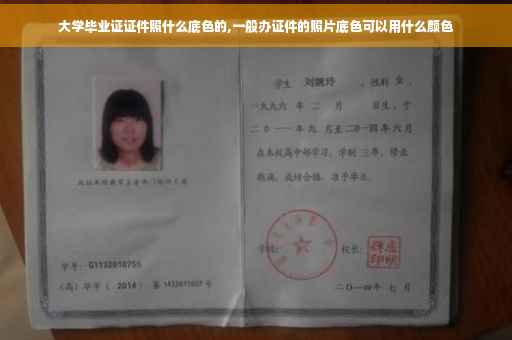 大学毕业证证件照什么底色的,一般办证件的照片底色可以用什么颜色
学生 刘婉玲 ，性别 女 ，
一九九六 年 二 月 日生，于
二〇一一年九 月至二〇一四年六月
在本校高中部学习，学制 三年，修业
期满，成绩合格，准予毕业。
学号： G1132010755
校长：
(高) 毕字（ 2014 ）第 1432011027 号
二〇一四年 七 月